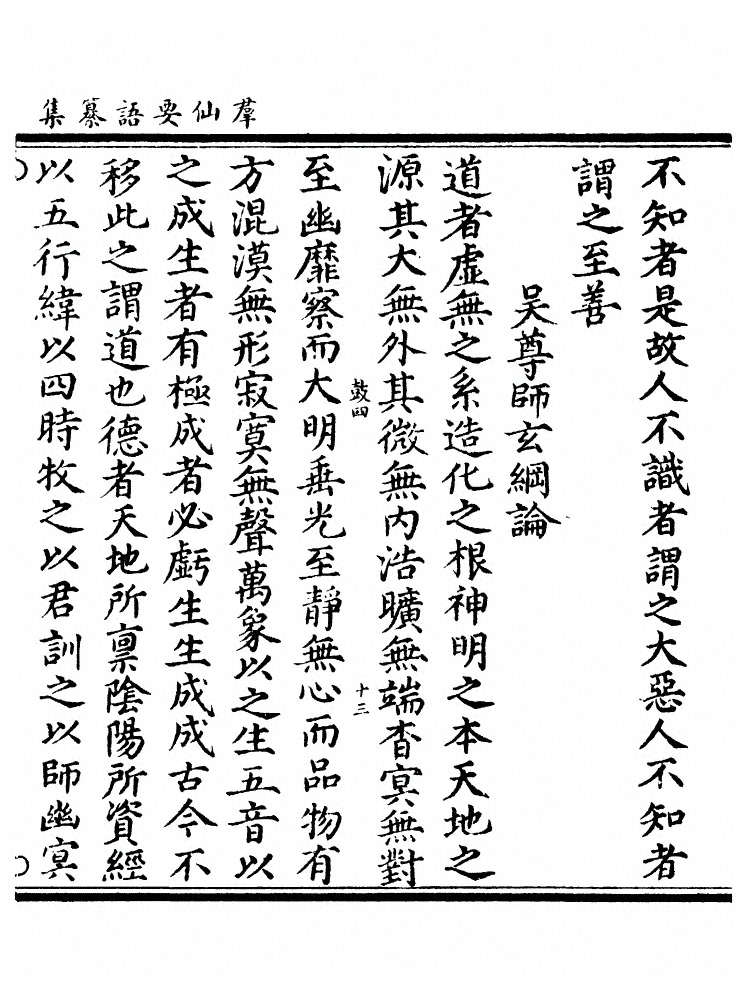 羣仙要語纂集
不知者是故人不識者謂之大惡人不知者
謂之至善
吴尊師玄綱論
道者虛無之系造化之根神明之本天地之
源其大無外其微無内浩曠無端杳冥無對
鼓四
十三
至幽靡察而大明垂光至靜無心而品物有
方混漠無形寂寞無聲萬象以之生五音以
之成生者有極成者必虧生生成成古今不
移此之謂道也德者天地所禀陰陽所資經
以五行緯以四時牧之以君訓之以師幽冥